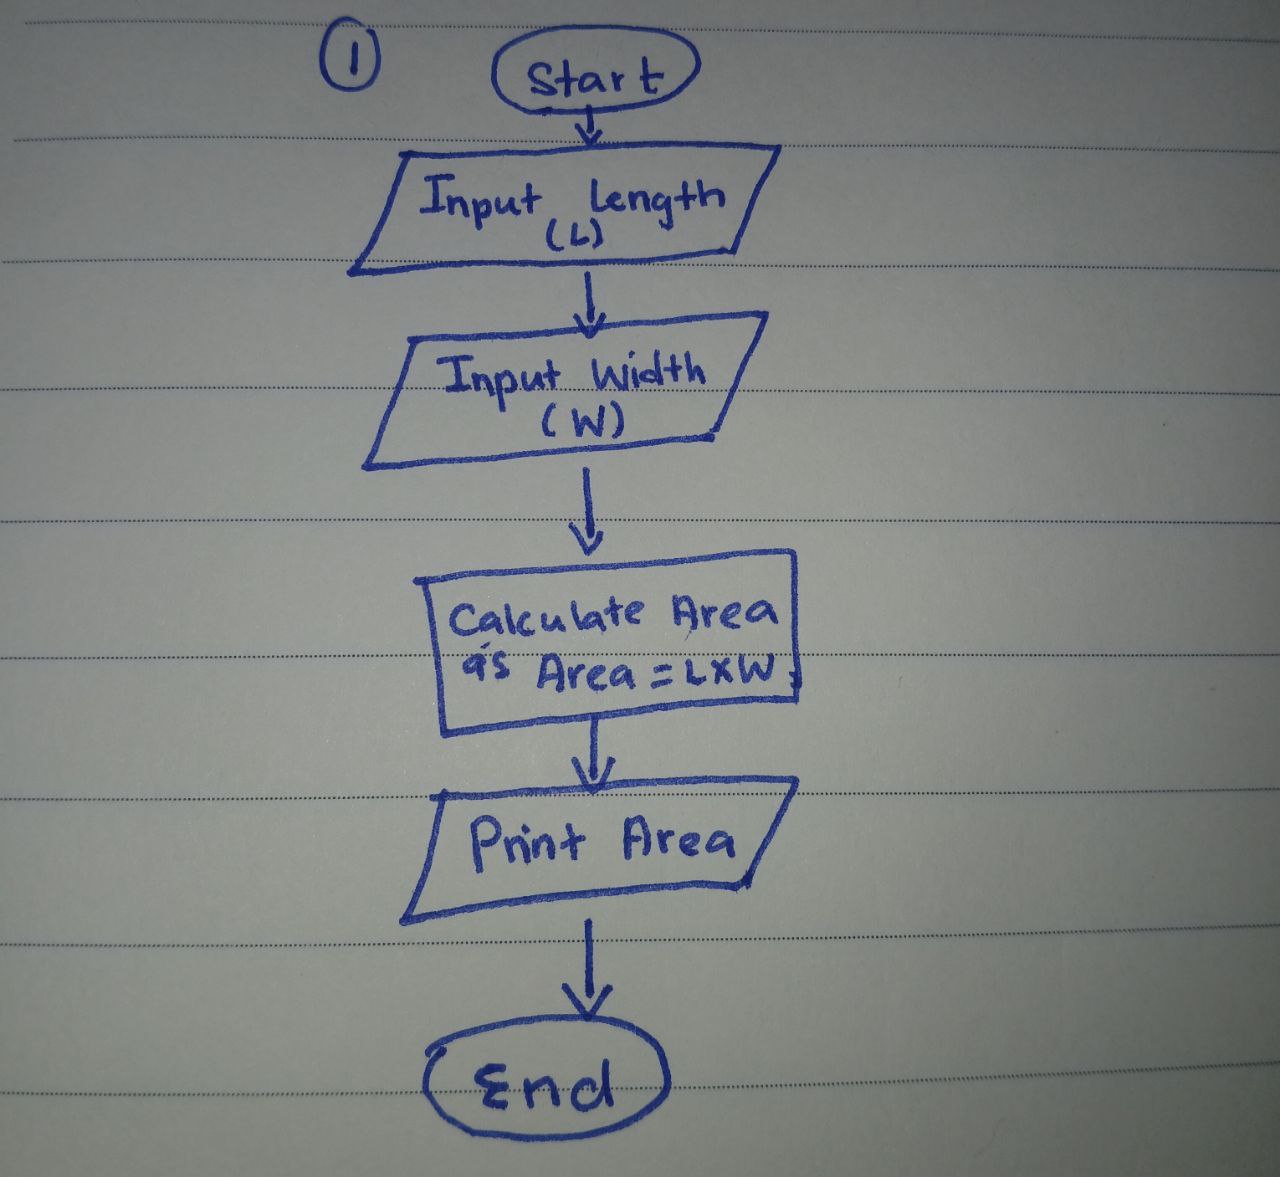 1
Start
Input Length
(L)
Input Width
(W)
Calculate Area
as Area = L×W
Print Area
End